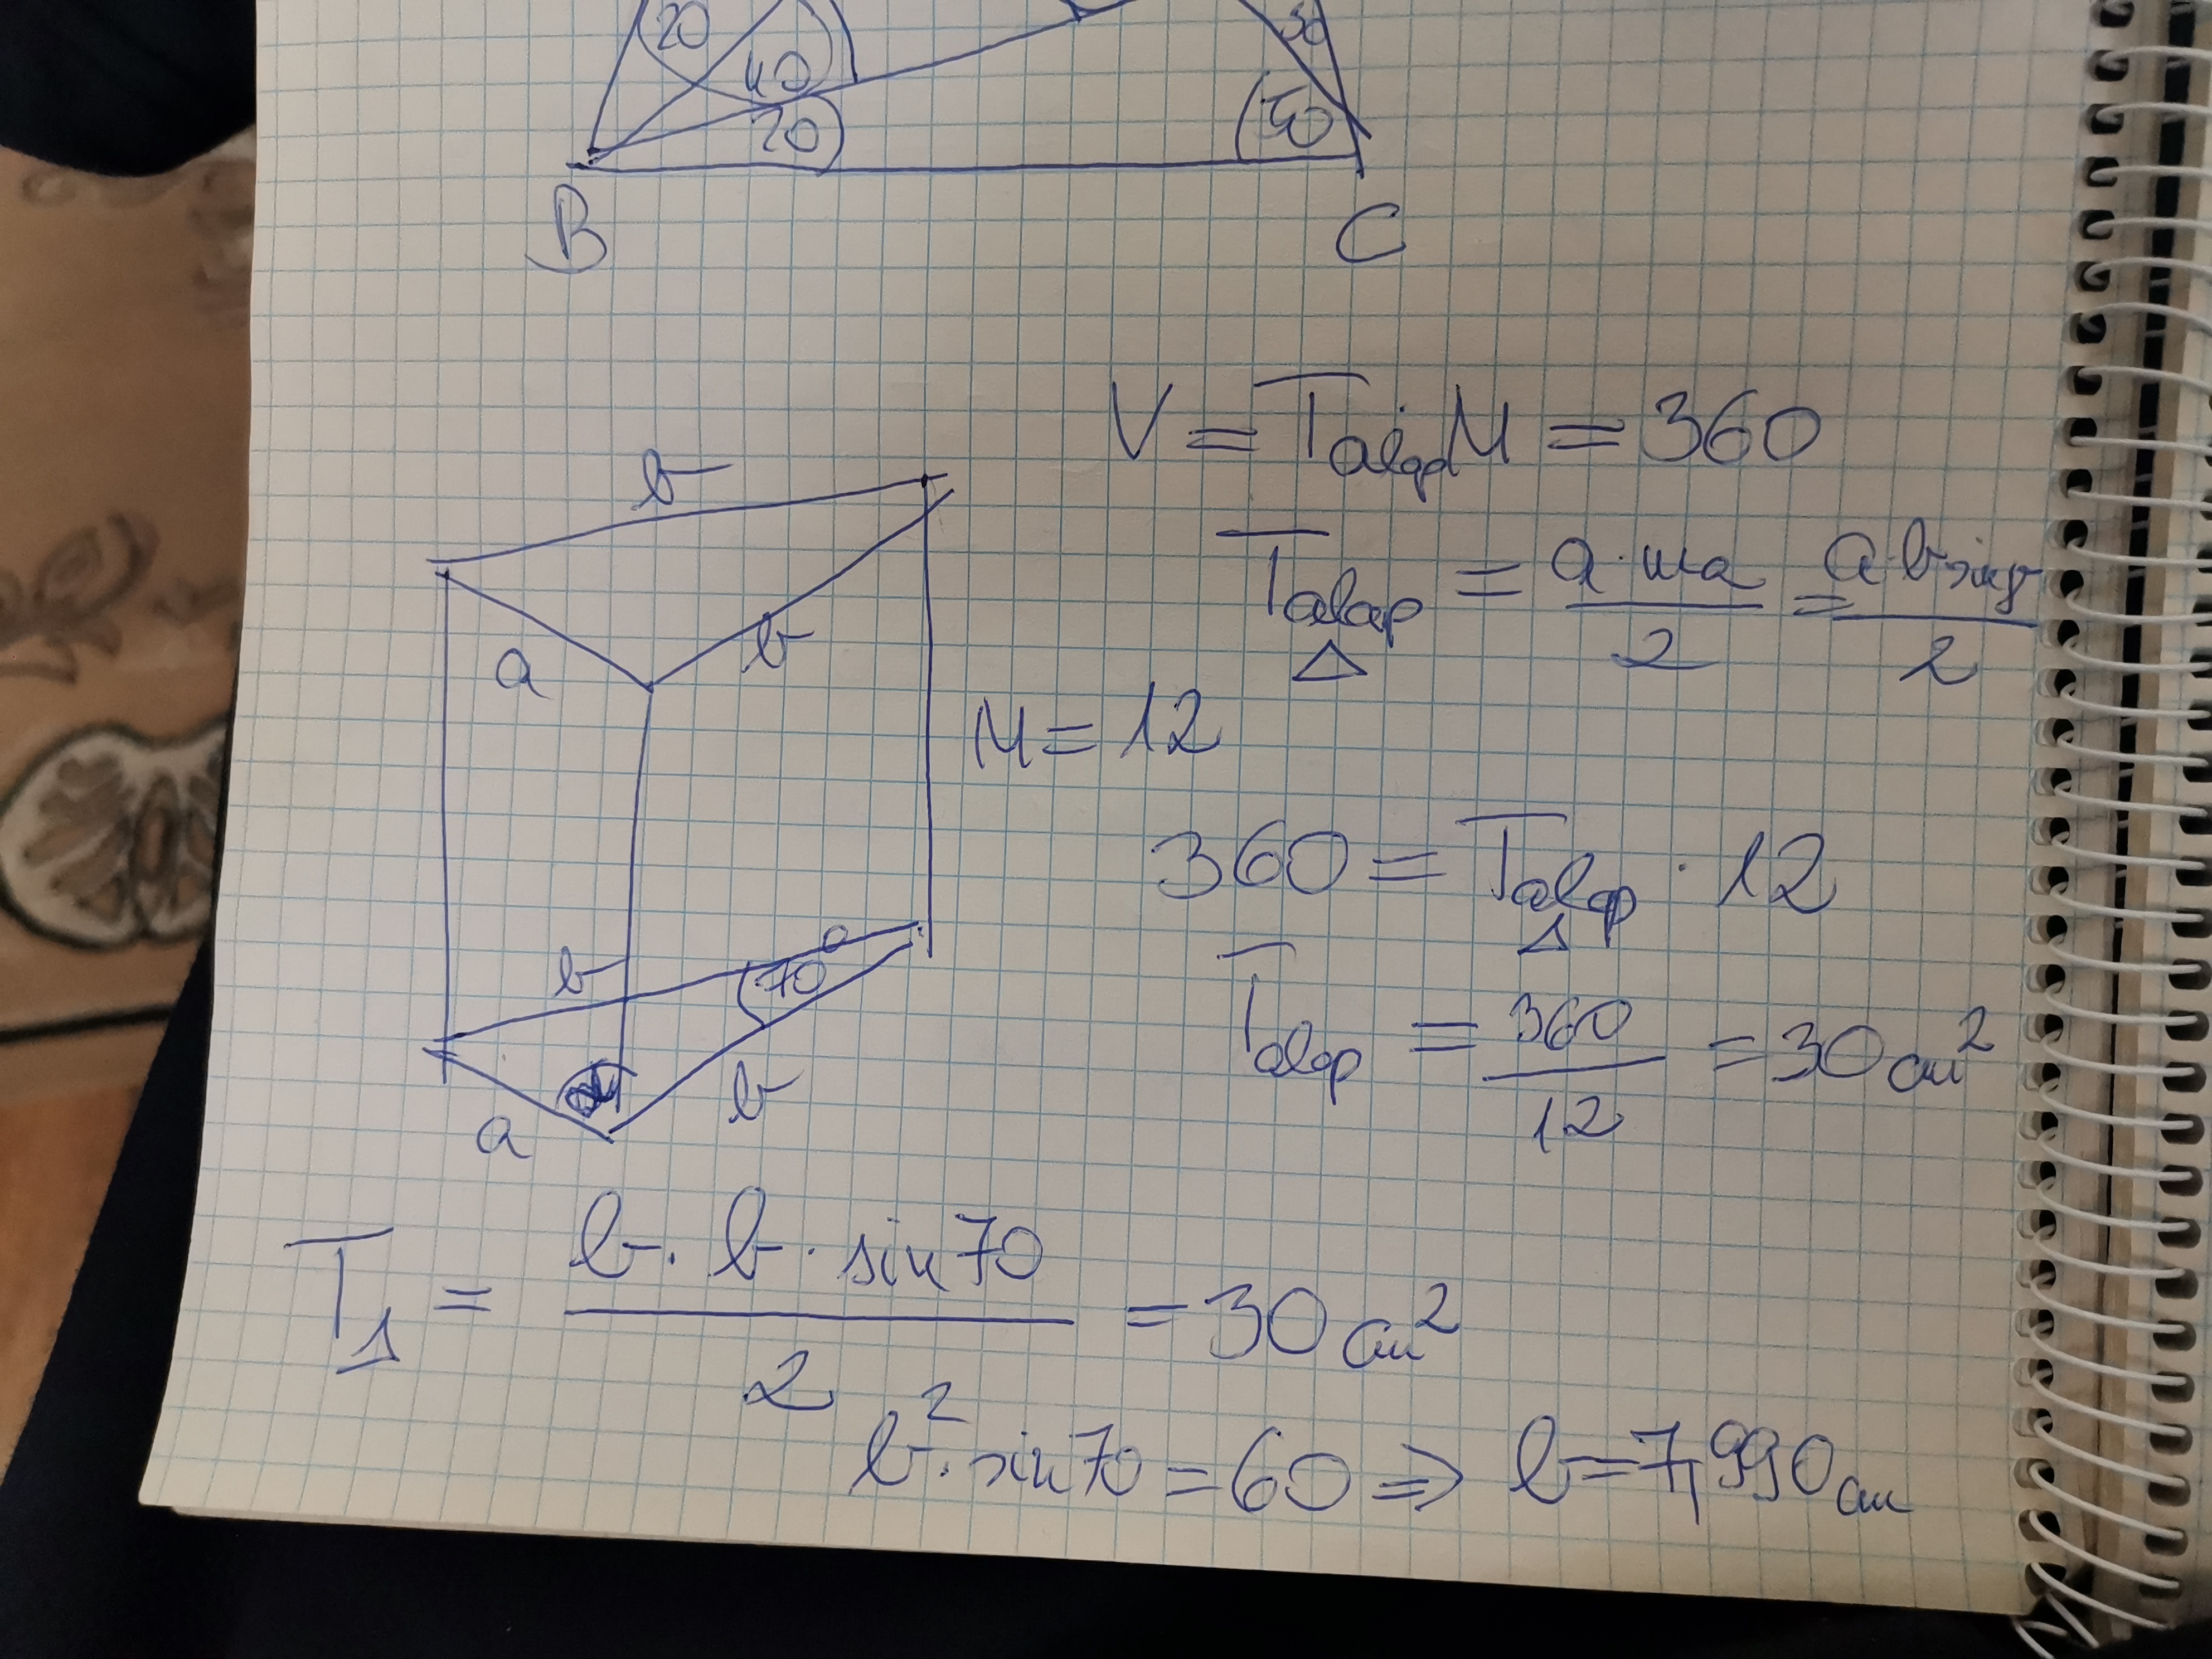 20
30
40
20
40
B
C
V = Talap M = 360
b
Talap = a · ma / 2 = a · b sin γ / 2
Δ
a
b
M = 12
360 = TalapΔ · 12
b
70°
Talap = 360 / 12 = 30 cm²
a
b
TΔ = b · b · sin 70 / 2 = 30 cm²
b² · sin 70 = 60 ⇒ b = 7,990 cm